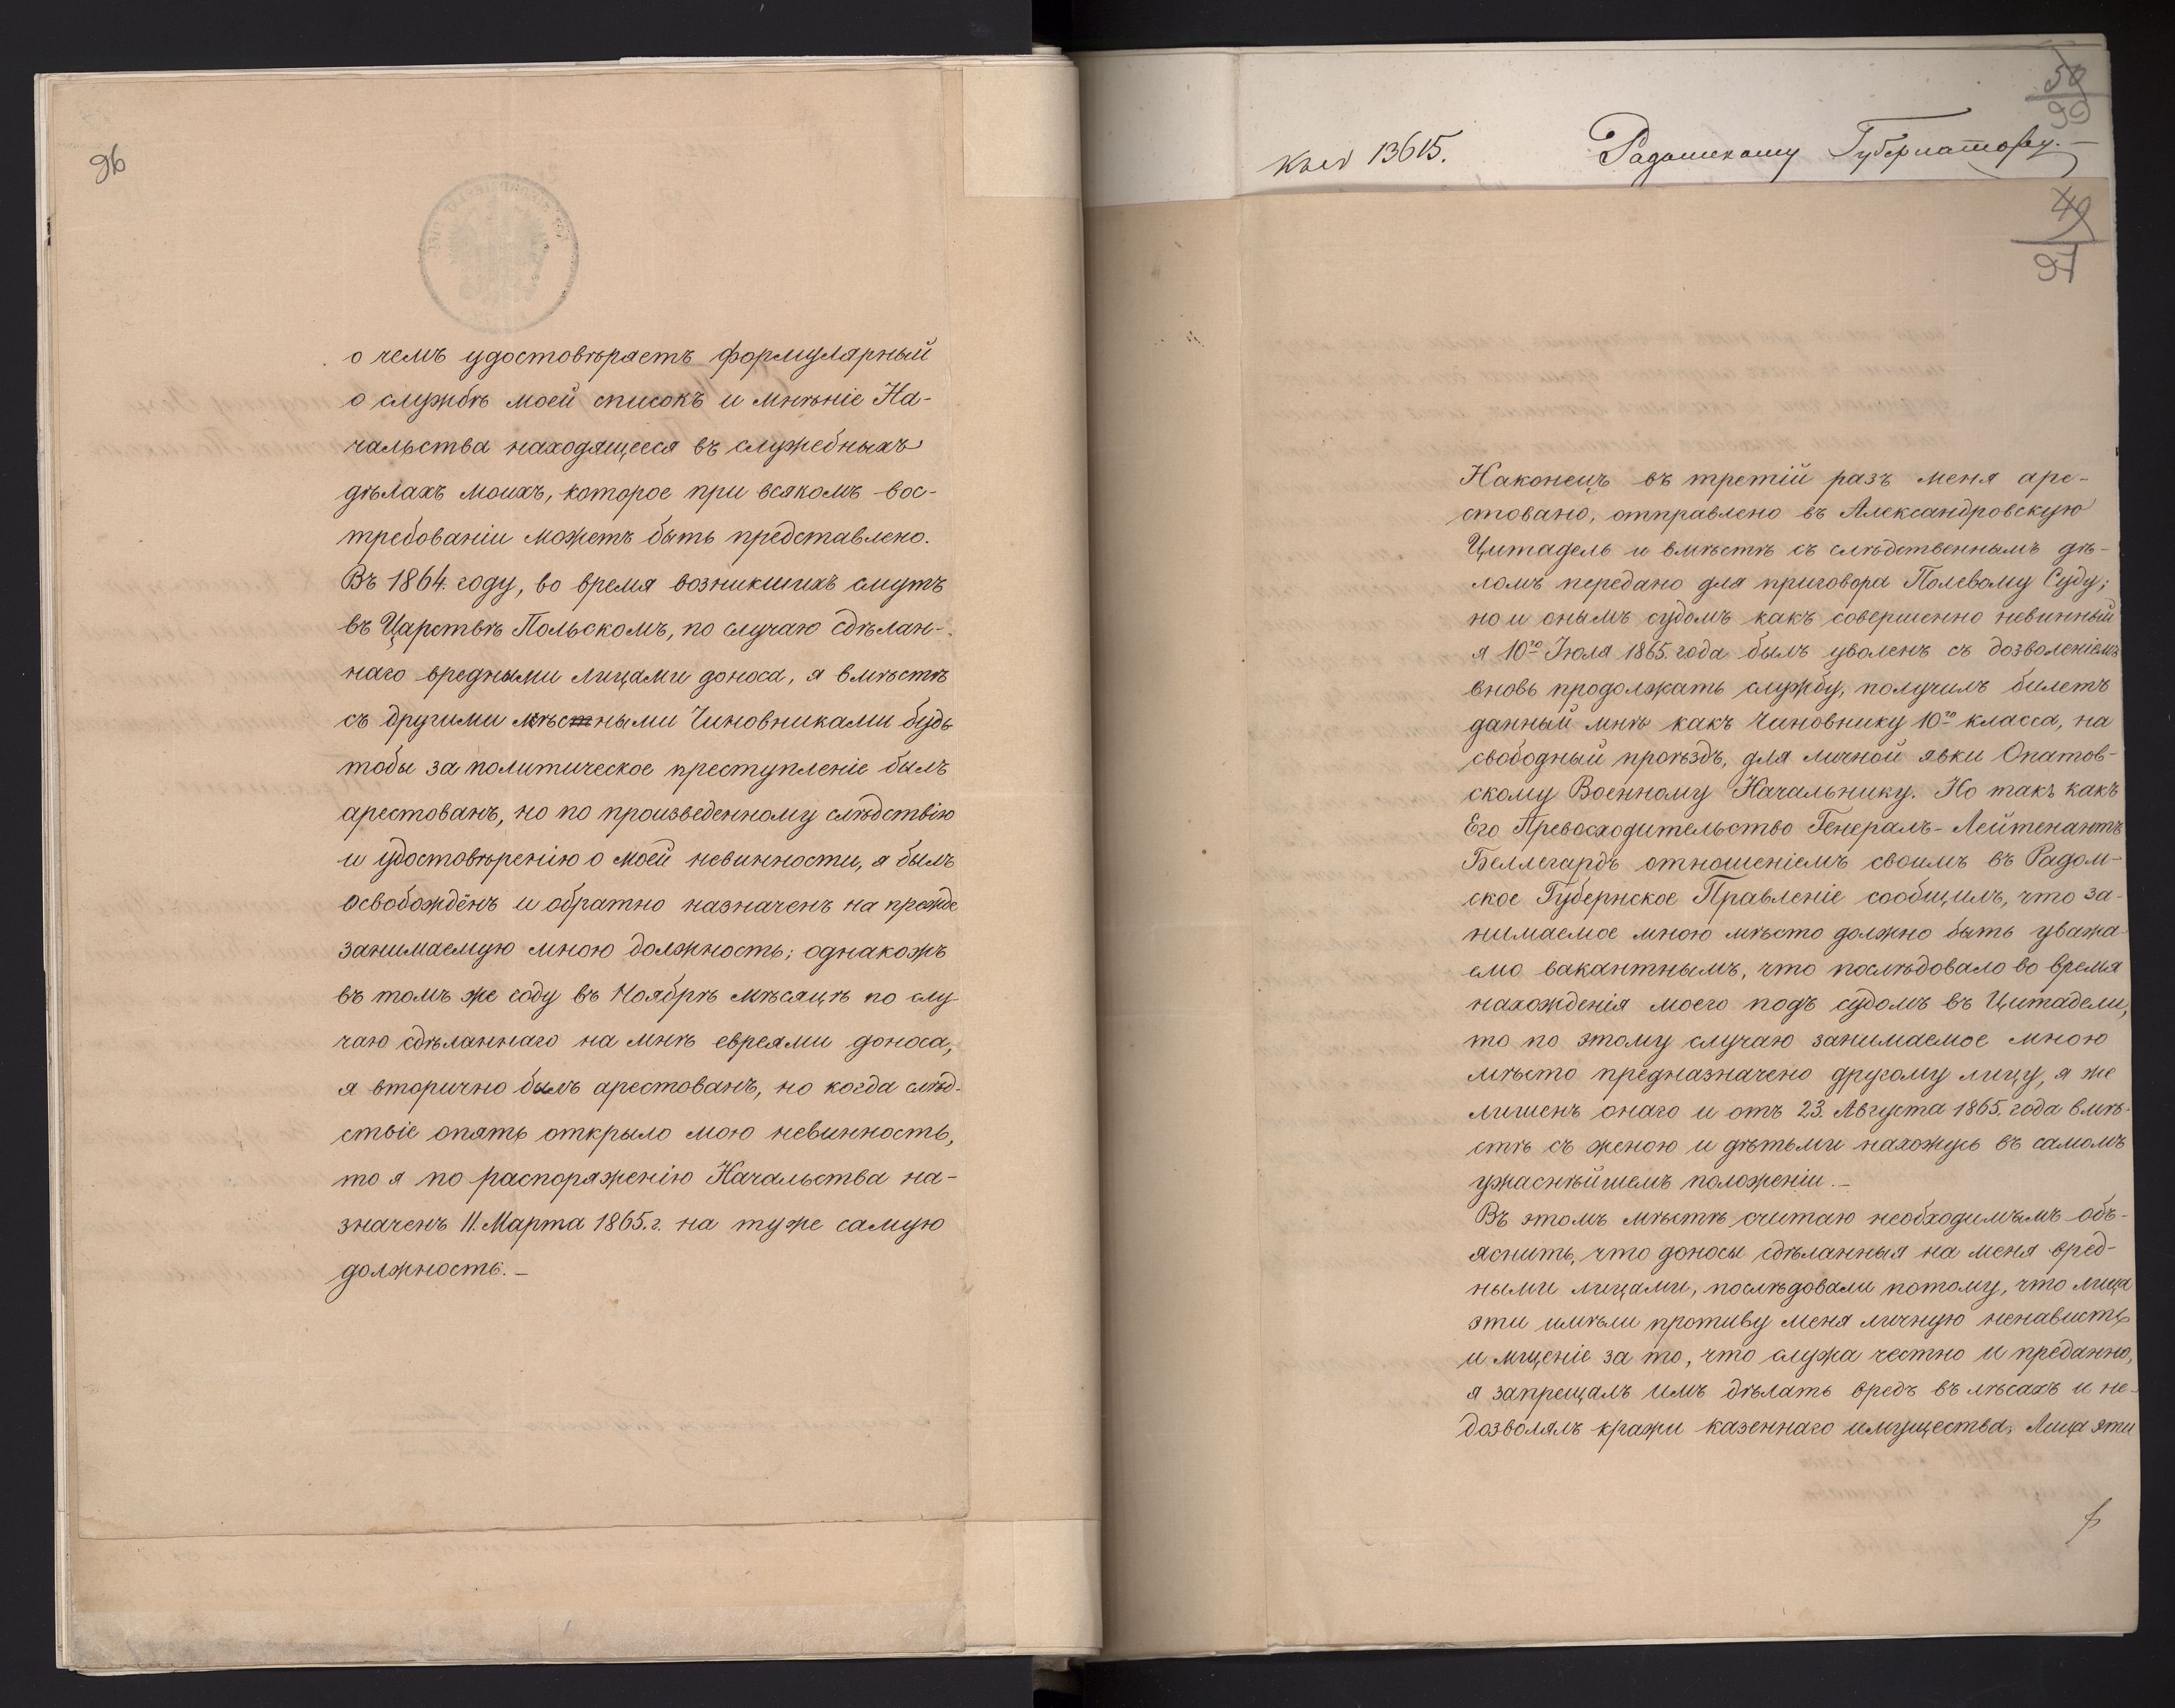 96
о чемъ удостовѣряетъ формулярный
о службѣ моей списокъ и мнѣніе На-
чальства находящееся въ служебныхъ
дѣлахъ моихъ, которое при всякомъ вос-
требованіи можетъ быть представлено.
Въ 1864. году, во время возникшихъ смутъ
въ Царствѣ Польскомъ, по случаю сдѣлан-
наго вредными лицами доноса, я вмѣстѣ
съ другими мѣстными Чиновниками будь
тобы за политическое преступленіе былъ
арестованъ, но по произведенному слѣдствію
и удостовѣренію о моей невинности, я былъ
освобождёнъ и обратно назначенъ на прежде
занимаемую мною должность; однакожъ
въ томъ же году въ Ноябрѣ мѣсяцѣ по слу-
чаю сдѣланнаго на мнѣ евреями доноса,
я вторично былъ арестованъ, но когда слѣд-
ствіе опять открыло мою невинность,
то я по распоряженію Начальства на-
значенъ 11. Марта 1865. г. на туже самую
должность.—
50
90
13615. Радомскому Губернатору.—
49
91
Наконецъ въ третій разъ меня аре-
стовано, отправлено въ Александровскую
Цитадель и вмѣстѣ съ слѣдственнымъ дѣ-
ломъ передано для приговора Полевому Суду;
но и онымъ судомъ какъ совершенно невинный
я 10го Іюля 1865. года былъ уволенъ съ дозволеніемъ
вновь продолжать службу, получилъ билетъ
данный мнѣ какъ Чиновнику 10го класса, на
свободный проѣздъ, для личной явки Опатов-
скому Военному Начальнику. Но такъ какъ
Его Превосходительство Генералъ-Лейтенантъ
Беллегардъ отношеніемъ своимъ въ Радом-
ское Губернское Правленіе сообщилъ, что за-
нимаемое мною мѣсто должно быть уважа-
емо вакантнымъ, что послѣдовало во время
нахожденія моего подъ судомъ въ Цитадели,
то по этому случаю занимаемое мною
мѣсто предназначено другому лицу, я же
лишенъ онаго и отъ 23. Августа 1865. года вмѣ-
стѣ съ женою и дѣтьми нахожусь въ самомъ
ужаснѣйшемъ положеніи.—
Въ этомъ мѣстѣ считаю необходимымъ объ-
яснить, что доносы сдѣланныя на меня вред-
ными лицами, послѣдовали потому, что лица
эти имѣли противу меня личную ненависть
и мщеніе за то, что служа честно и преданно,
я запрещалъ имъ дѣлать вредъ въ лѣсахъ и не-
дозволялъ кражи казеннаго имущества. Лица эти